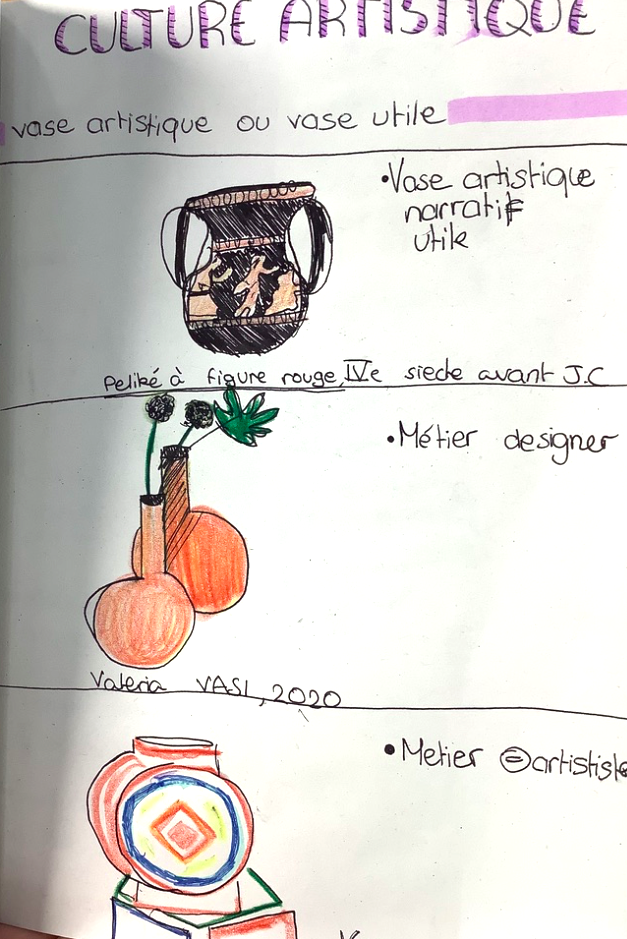 CULTURE ARTISTIQUE
vase artistique ou vase utile
•Vase artistique
narratif
utile
Peliké à figure rouge, IVe siecle avant J.C
•Métier designer
Valeria VASI, 2020
•Metier = artististe